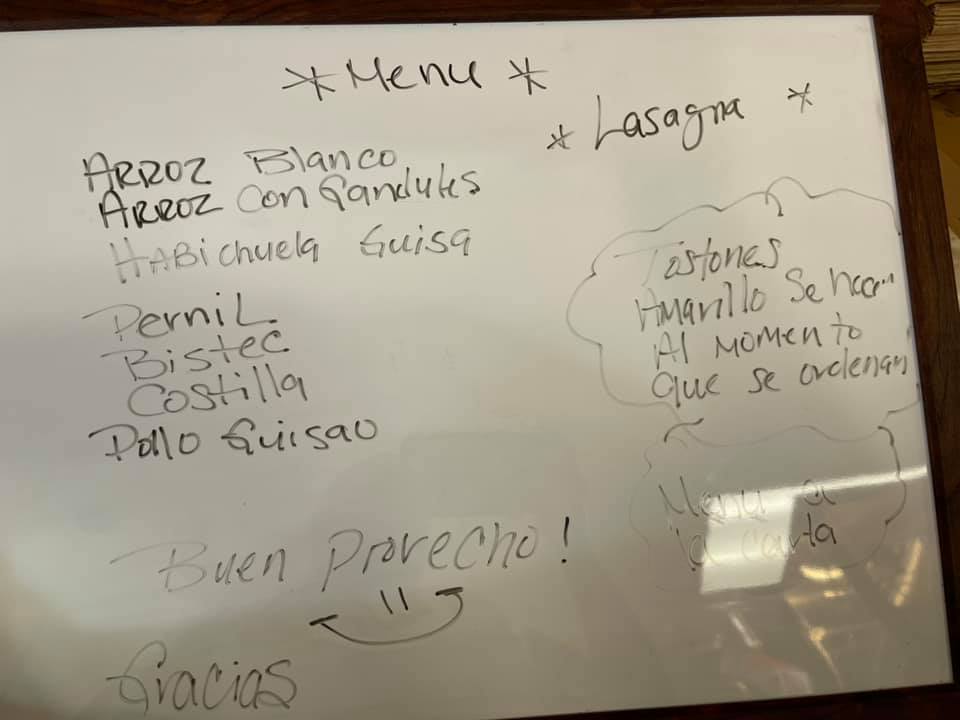 *Menu*
* Lasagna *
ARROZ Blanco
ARROZ Con Gandules
HABichuela Guisa
PerniL
BisteC
Costilla
Pollo Guisao
Tostones
Amarillo Se hacen
Al momento
que se ordenan
Menu a
la carta
Buen Provecho!
Gracias